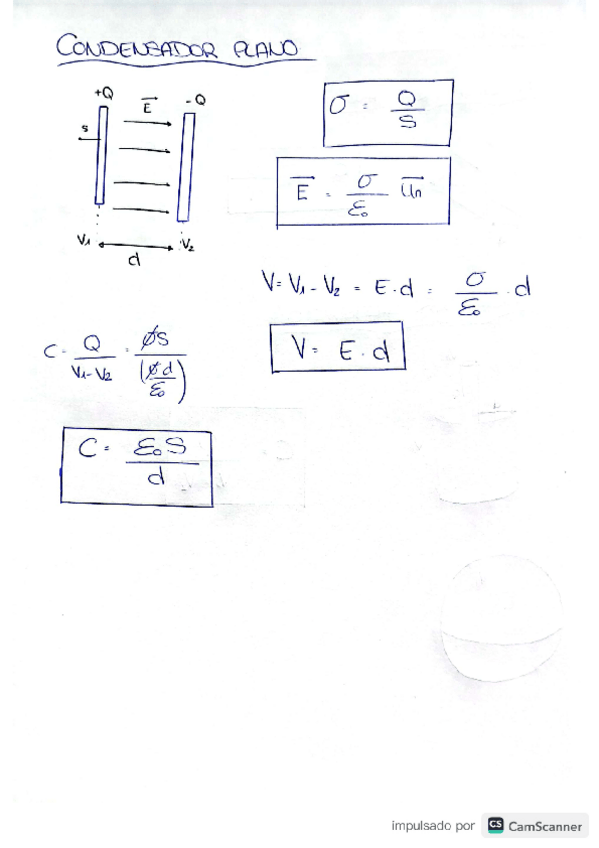 CONDENSADOR PLANO
+Q
E⃗
-Q
S
V₁
d
V₂
σ = Q/S
E⃗ = σ/ε₀ u⃗n
V = V₁ - V₂ = E·d = σ/ε₀ · d
V = E·d
C = Q/(V₁-V₂) = σS/(σd/ε₀)
C = ε₀S/d
impulsado por CS CamScanner